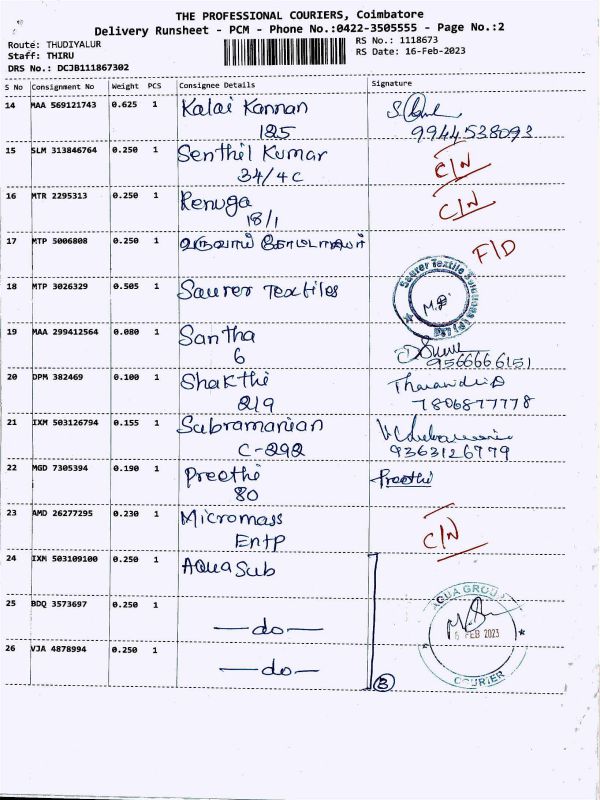 THE PROFESSIONAL COURIERS, Coimbatore
Delivery Runsheet - PCM - Phone No.:0422-3505555 - Page No.:2
Route: THUDIYALUR
RS No.: 1118673
Staff: THIRU
RS Date: 16-Feb-2023
DRS No.: DCJB111867302
S No Consignment No Weight PCS Consignee Details Signature
14 MAA 569121743 0.625 1 Kalai Kannan
125 9944538093
15 SLM 313846764 0.250 1 Senthil Kumar C/N
34/4C
16 MTR 2295313 0.250 1 Renuga C/N
18/1
17 MTP 5006808 0.250 1 F/D
18 MTP 3026329 0.505 1 Saurer Textiles
Saurer Textile
19 MAA 299412564 0.080 1 Santha
6 9566666151
20 DPM 382469 0.100 1 Shakthi
219 7806877778
21 IXM 503126794 0.155 1 Subramanian
C-292 9363126779
22 MGD 7305394 0.190 1 Preethi Preethi
80
23 AMD 26277295 0.230 1 Micromass C/N
Entp
24 IXM 503109100 0.250 1 Aqua Sub
AQUA GROUP
25 BDQ 3573697 0.250 1 —do—
FEB 2023
26 VJA 4878994 0.250 1 —do—
COURIER
3